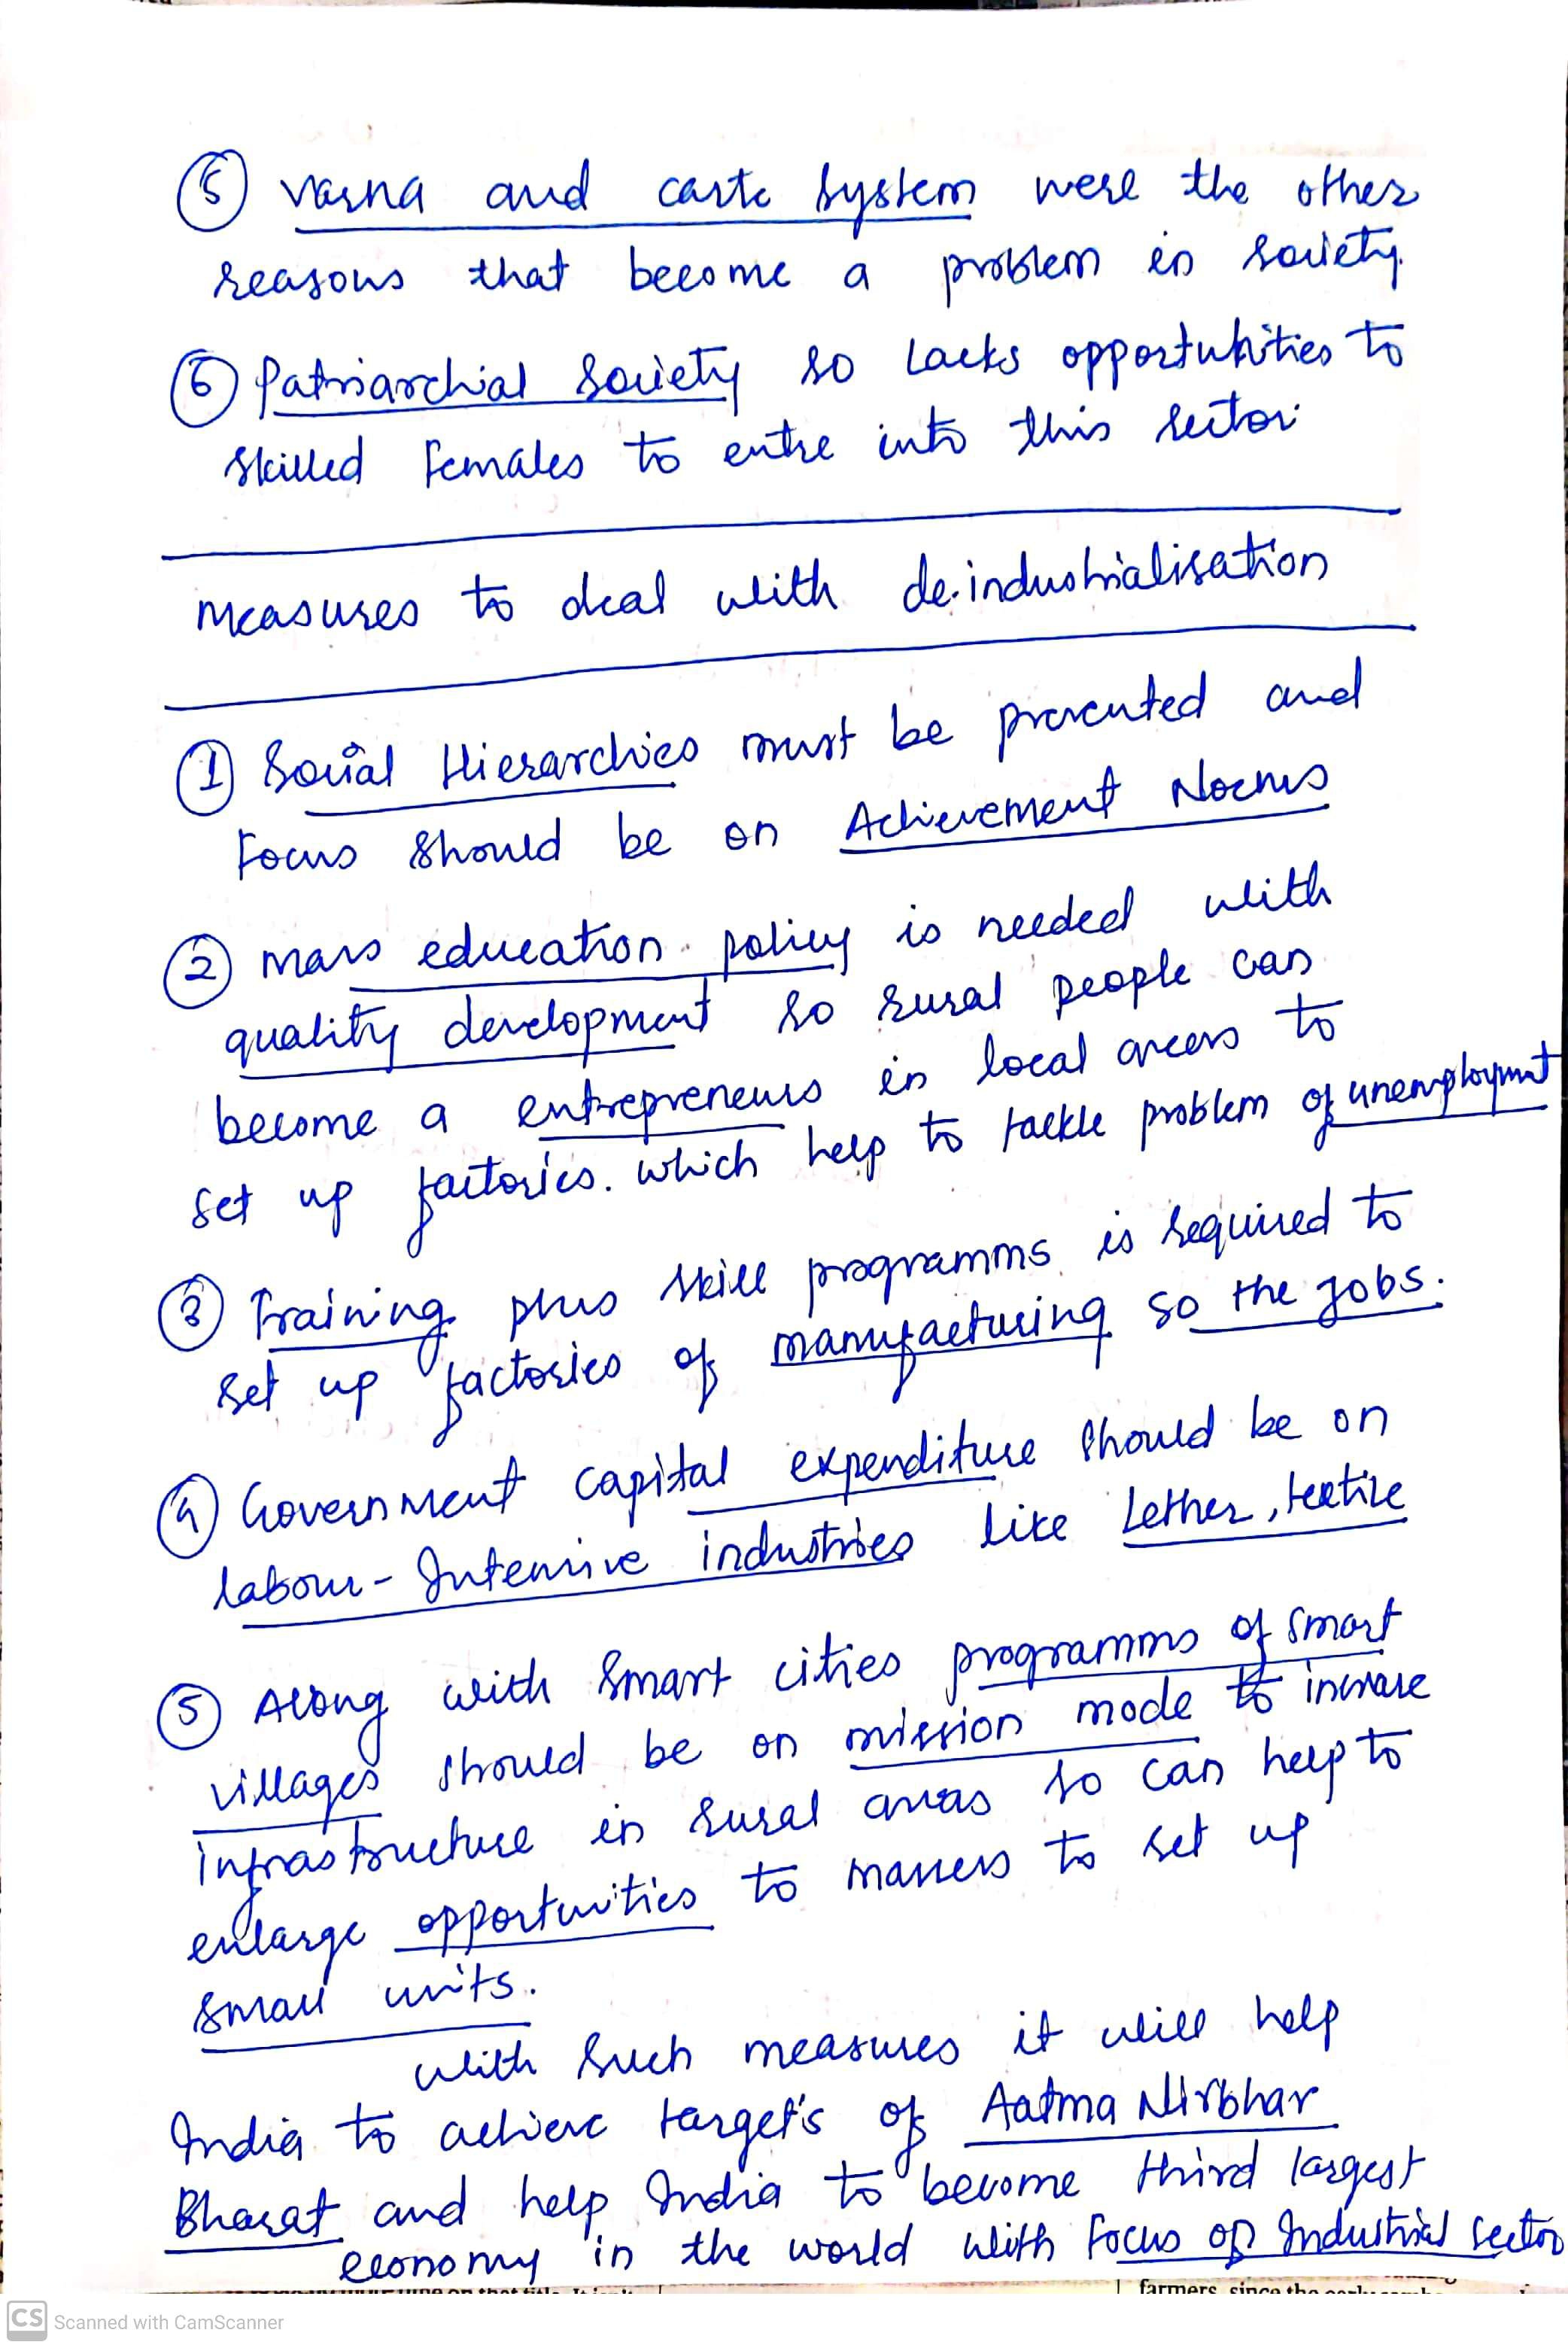 ⑤ varna and caste system were the other
reasons that become a problem in society.
⑥ Patriarchial Society so Lacks opportunities to
skilled Females to entre into this sector
measures to deal with de-industrialisation
① Social Hierarchies must be prevented and
Focus should be on Achievement Norms
② mass education policy is needed with
quality development so rural people can
become a entrepreneurs in local areas to
set up factories. which help to tackle problem of unemployment
③ Training plus skill programms is required to
set up factories of manufacturing so the jobs.
④ Government capital expenditure should be on
labour-Intensive industries like Lether, textile
⑤ Along with smart cities programms of smart
villages should be on mission mode to increase
infrastructure in rural areas so can help to
enlarge opportunities to masses to set up
small units.
with such measures it will help
India to achieve target's of Aatma Nirbhar
Bharat and help India to become third largest
economy in the world with Focus on Industrial sector
farmers, since the early
CS Scanned with CamScanner